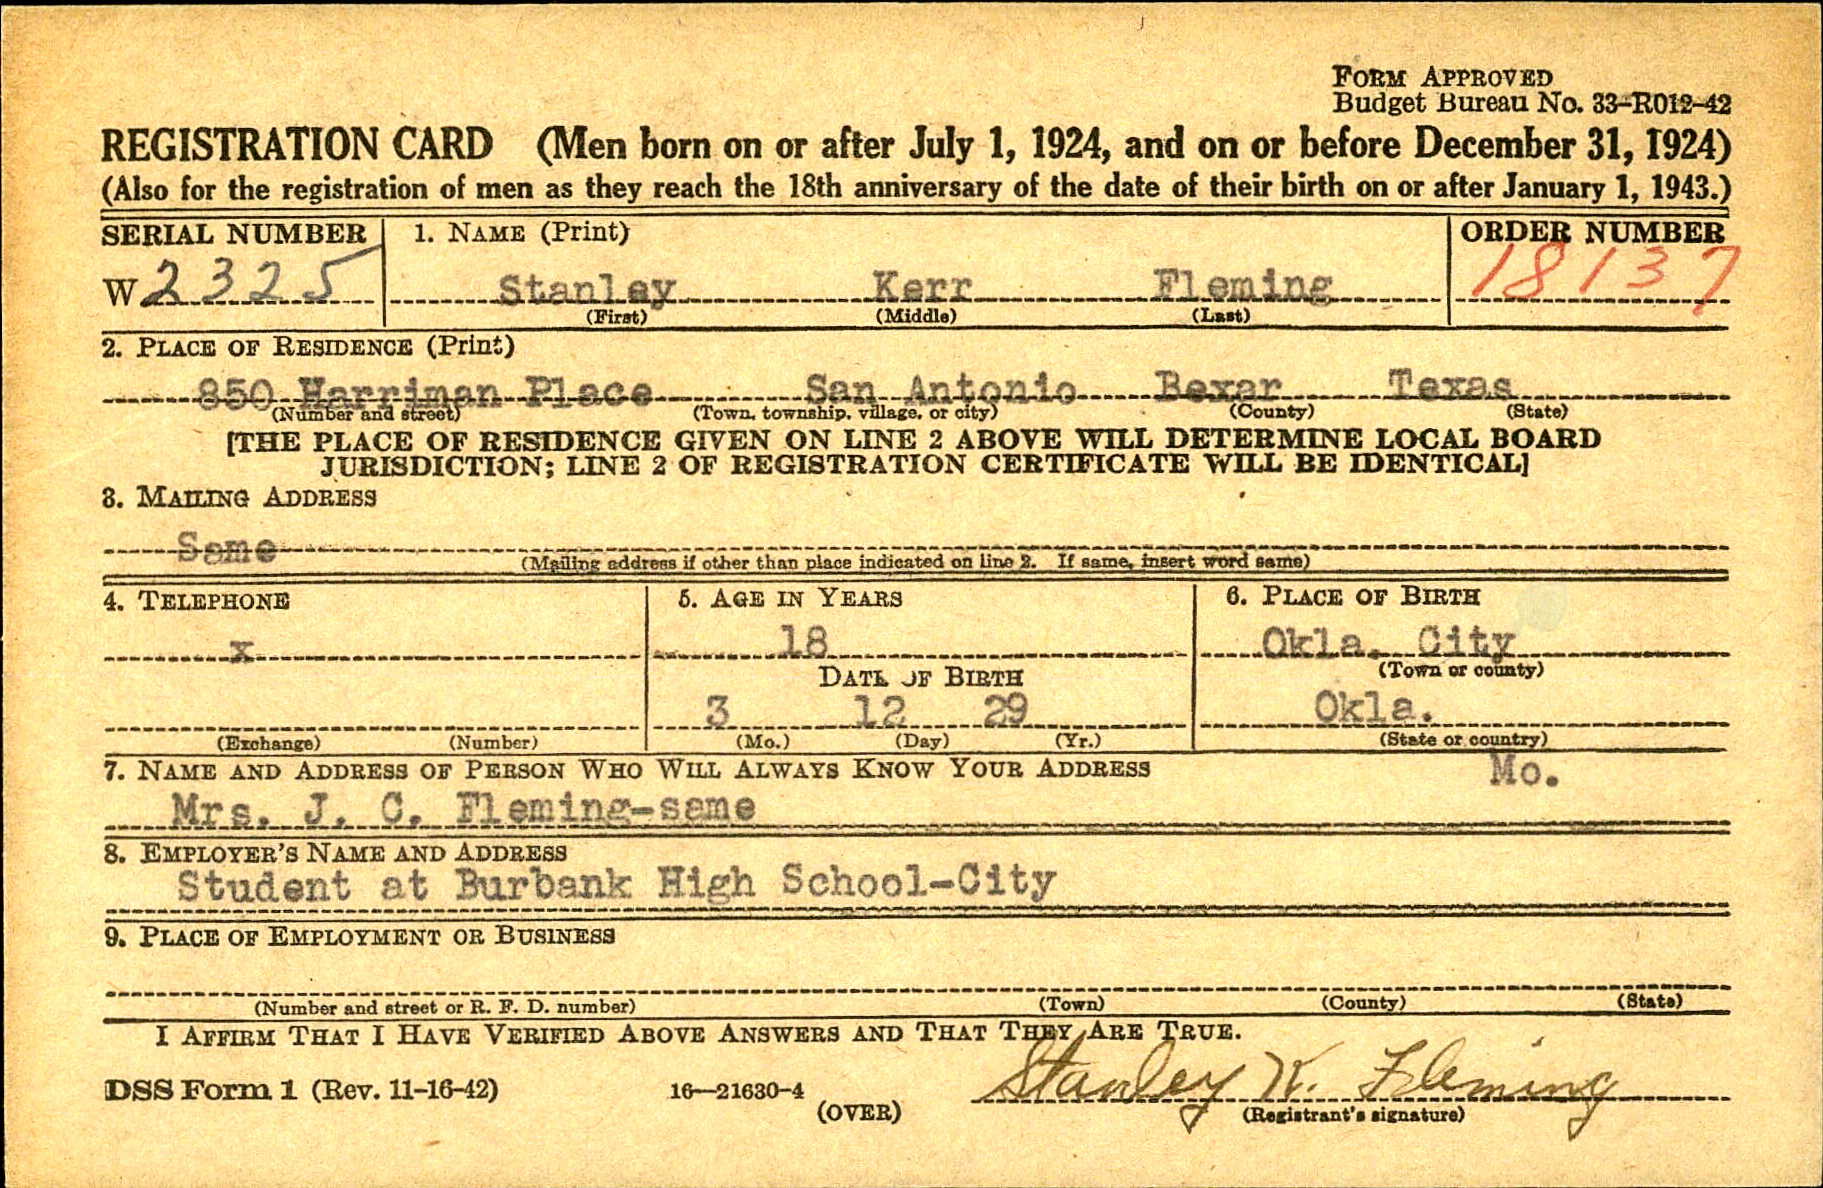 FORM APPROVED
Budget Bureau No. 33-R012-42
REGISTRATION CARD (Men born on or after July 1, 1924, and on or before December 31, 1924)
(Also for the registration of men as they reach the 18th anniversary of the date of their birth on or after January 1, 1943.)
SERIAL NUMBER 1. NAME (Print) ORDER NUMBER
W 2325 Stanley Kerr Fleming 18137
(First) (Middle) (Last)
2. PLACE OF RESIDENCE (Print)
850 Harriman Place San Antonio Bexar Texas
(Number and street) (Town, township, village, or city) (County) (State)
[THE PLACE OF RESIDENCE GIVEN ON LINE 2 ABOVE WILL DETERMINE LOCAL BOARD
JURISDICTION; LINE 2 OF REGISTRATION CERTIFICATE WILL BE IDENTICAL]
3. MAILING ADDRESS
Same
(Mailing address if other than place indicated on line 2. If same, insert word same)
4. TELEPHONE 5. AGE IN YEARS 6. PLACE OF BIRTH
x 18 Okla. City
DATE OF BIRTH (Town or county)
3 12 29 Okla.
(Exchange) (Number) (Mo.) (Day) (Yr.) (State or country)
7. NAME AND ADDRESS OF PERSON WHO WILL ALWAYS KNOW YOUR ADDRESS Mo.
Mrs. J. C. Fleming-same
8. EMPLOYER'S NAME AND ADDRESS
Student at Burbank High School-City
9. PLACE OF EMPLOYMENT OR BUSINESS
(Number and street or R. F. D. number) (Town) (County) (State)
I AFFIRM THAT I HAVE VERIFIED ABOVE ANSWERS AND THAT THEY ARE TRUE.
DSS Form 1 (Rev. 11-16-42) 16—21630-4 Stanley K. Fleming
(OVER) (Registrant's signature)